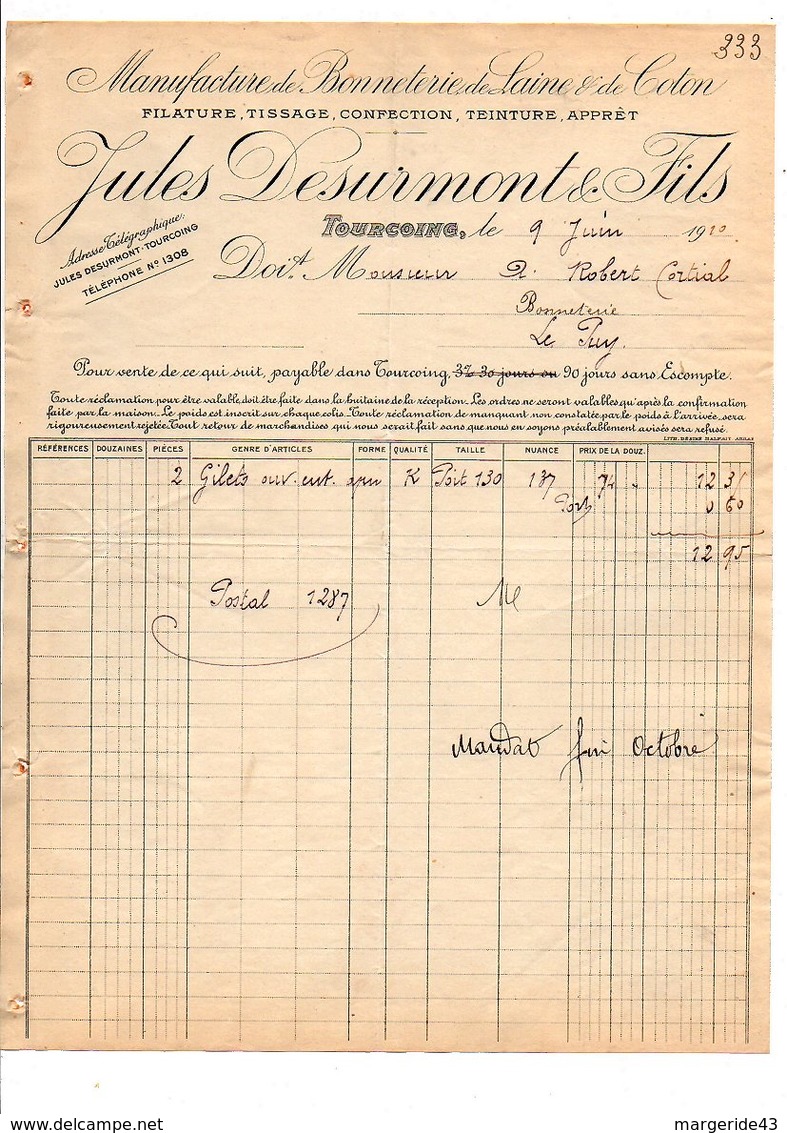 333
Manufacture de Bonneterie de Laine & de Coton
FILATURE, TISSAGE, CONFECTION, TEINTURE, APPRÊT
Jules Desurmont & Fils
Adresse Télégraphique:
JULES DESURMONT-TOURCOING
TÉLÉPHONE N° 1308
TOURCOING, le 9 Juin 1910
Doit Monsieur A. Robert Cortial
Bonneterie
Le Puy.
Pour vente de ce qui suit, payable dans Tourcoing, 3% 30 jours ou 90 jours sans Escompte.
Toute réclamation pour être valable, doit être faite dans la huitaine de la réception. Les ordres ne seront valables qu'après la confirmation
faite par la maison. Le poids est inscrit sur chaque colis. Toute réclamation de manquant non constatée par le poids à l'arrivée sera
rigoureusement rejetée. Tout retour de marchandises qui nous serait fait sans que nous en soyons préalablement avisés sera refusé.
RÉFÉRENCES DOUZAINES PIÈCES GENRE D'ARTICLES FORME QUALITÉ TAILLE NUANCE PRIX DE LA DOUZ.
2 Gilets ouv. ent. K Poit 130 187 74 " 12 35
Port 0 60
12 95
Postal 1287
Mandat fin Octobre
margeride43